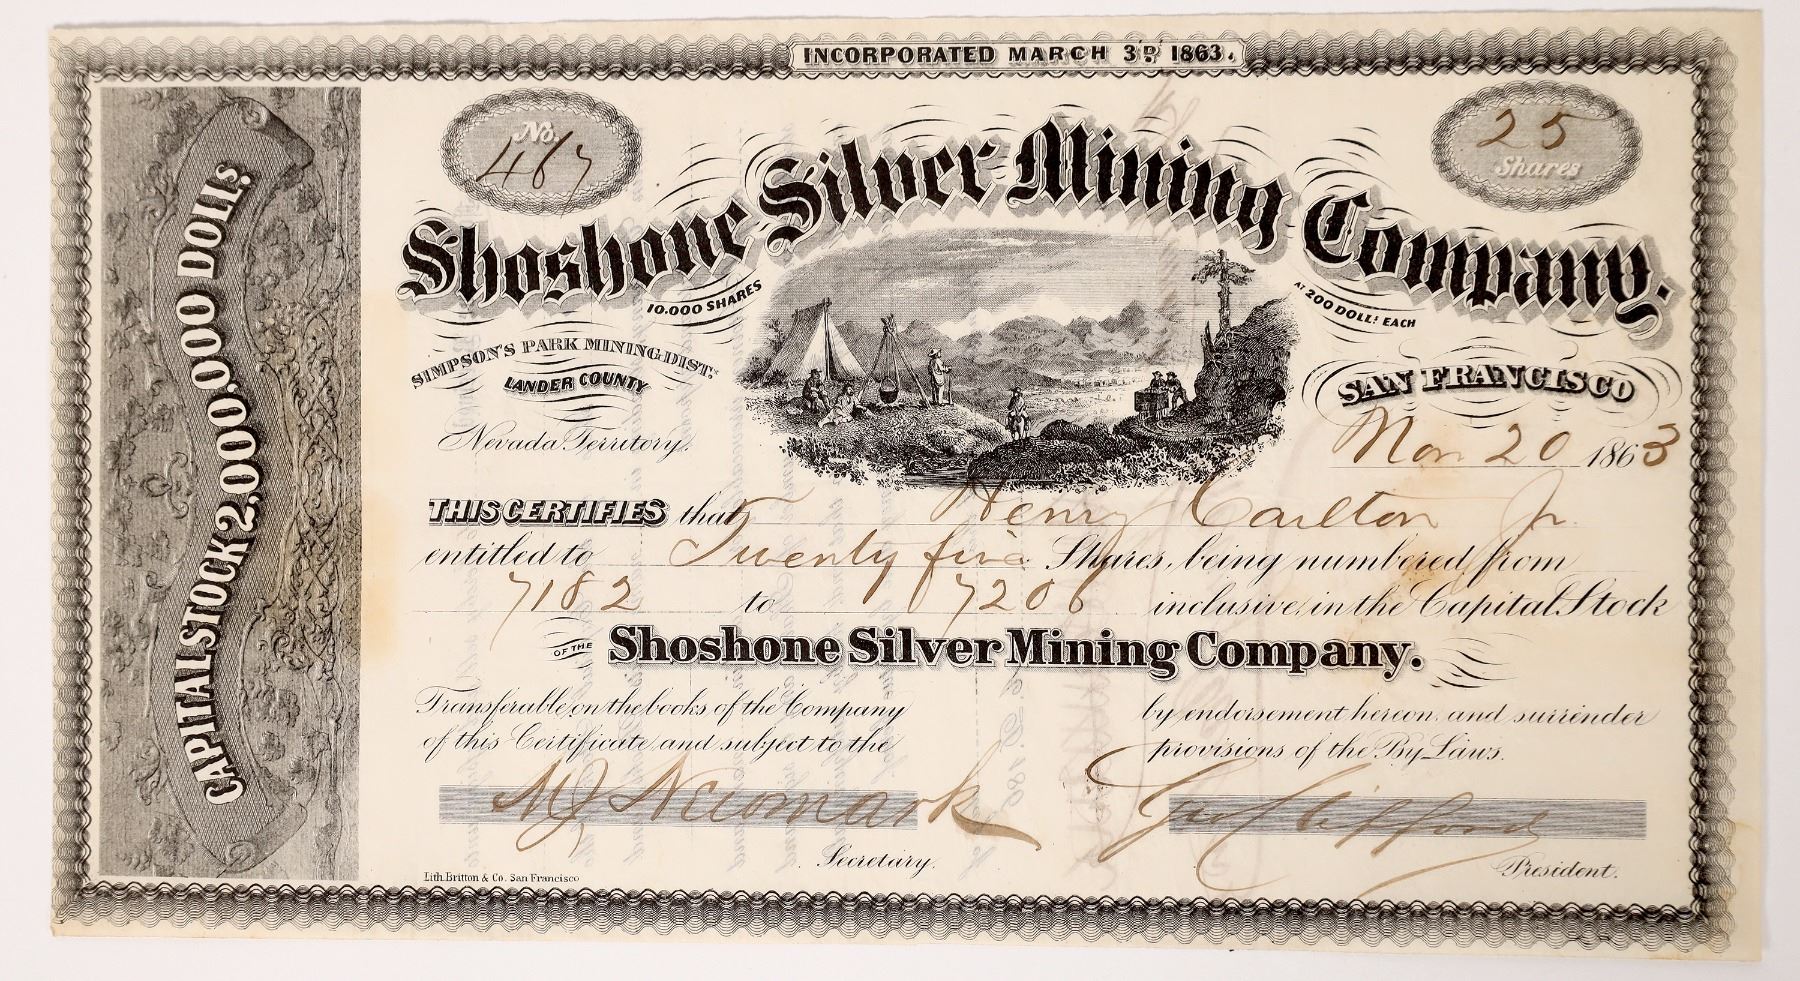 INCORPORATED MARCH 3D. 1863.
No. 467
25 Shares
Shoshone Silver Mining Company.
10.000 SHARES
AT 200 DOLLS EACH
SIMPSON'S PARK MINING DIST.
LANDER COUNTY
Nevada Territory.
SAN FRANCISCO
Nov 20 1863
CAPITAL STOCK 2,000,000 DOLLS.
THIS CERTIFIES that Henry Carlton Jr.
entitled to Twenty five Shares, being numbered from
7182 to 7206 inclusive, in the Capital Stock
OF THE Shoshone Silver Mining Company.
Transferable on the books of the Company by endorsement hereon and surrender
of this Certificate and subject to the provisions of the By Laws.
MJ Newmark
Geo Clifford
Secretary.
President.
Lith. Britton & Co. San Francisco